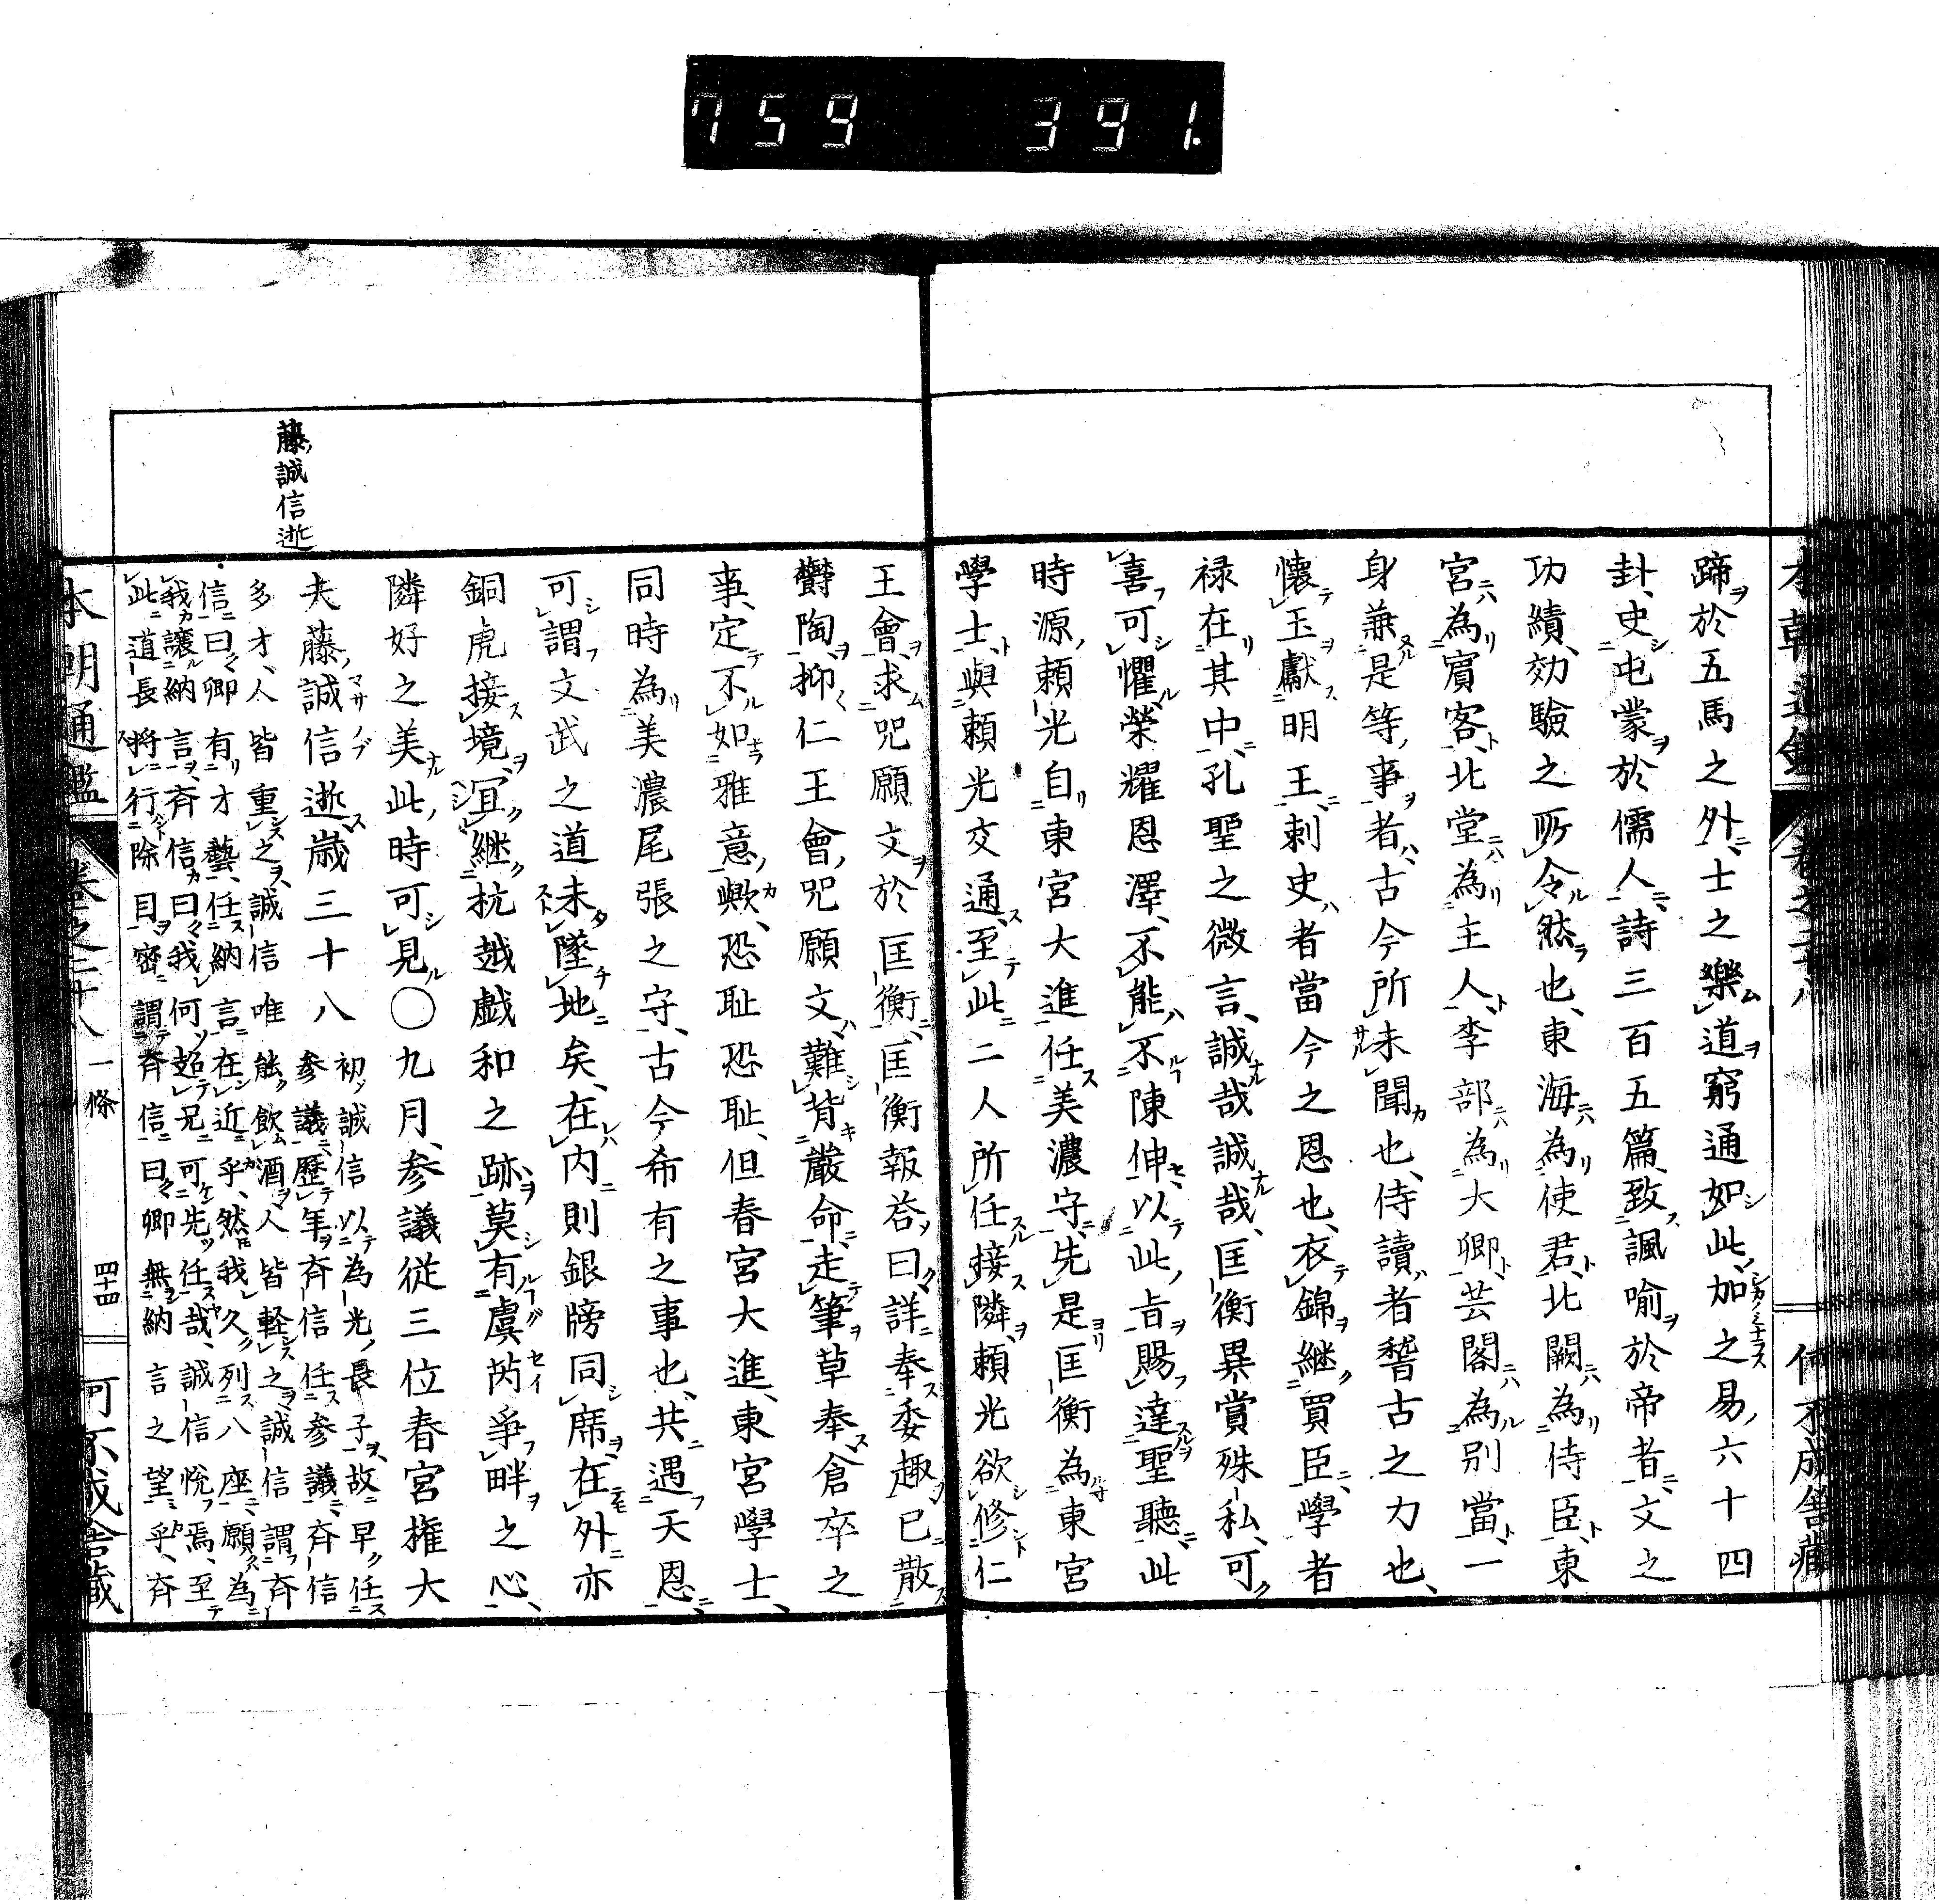 759 391.
蹄於五馬之外士之樂道窮通如此加之易六十四
卦史屯蒙於儒人詩三百五篇致諷喻於帝者文之
功績効驗之所令然也東海為使君北闕為侍臣東
宮為賓客北堂為主人李部為大卿芸閣為別當一
身兼是等事者古今所未聞也侍讀者稽古之力也
懷玉獻明王刺史者當今之恩也衣錦繼買臣學者
祿在其中孔聖之微言誠哉誠哉匡衡異賞殊私可
喜可懼榮耀恩澤不能不陳伸以此旨賜達聖聽此
時源頼光自東宮大進任美濃守先是匡衡為東宮
學士與頼光交通至此二人所任接隣頼光欲修仁
王會求咒願文於匡衡匡衡報荅曰詳奉委趣已散
欝陶抑仁王會咒願文難背嚴命走筆草奉倉卒之
事定不如雅意歟恐耻恐耻但春宮大進東宮學士
同時為美濃尾張之守古今希有之事也共遇天恩
可謂文武之道未墜地矣在內則銀牓同席在外亦
銅虎接境冝継抗越戯和之跡莫有虞芮爭畔之心
隣好之美此時可見〇九月參議從三位春宮權大
夫藤誠信逝歳三十八
初誠信以為光長子故早任
參議歷年斉信任參議斉信
多才人皆重之誠信唯能飲酒人皆軽之誠信謂斉
信曰卿有才藝任納言在近乎然我久列八座願為
我讓納言斉信曰我何超兄可先任哉誠信悅焉至
此道長將行除目密謂斉信曰卿無納言之望乎斉
藤誠信逝
本朝通鑑 卷之二十八 一條 四十四 何不成舎藏